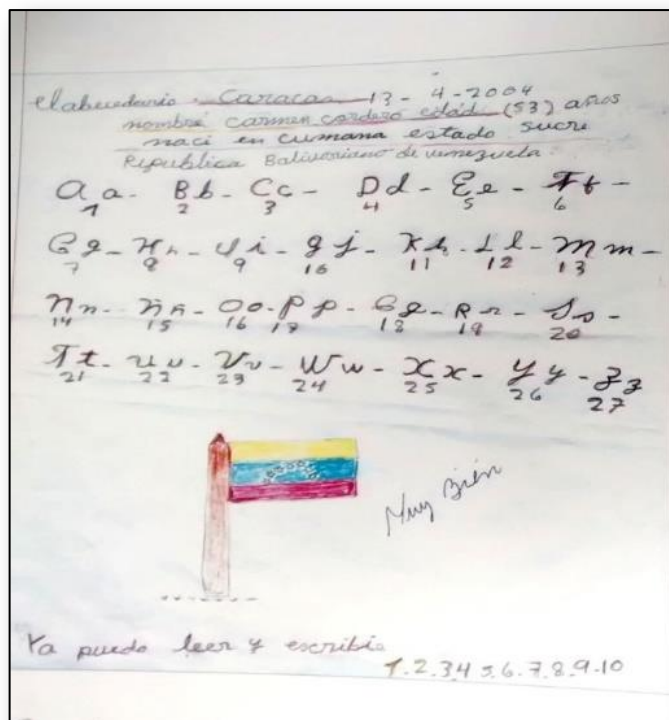 elabecedario. Caracas 13-4-2004
nombre carmen cordero edad (53) años
naci en cumana estado sucre
Republica Balivariano de venezuela.
A a - B b - C c - D d - E e - F f -
1 2 3 4 5 6
G g - H h - Y i - J j - K k - L l - M m -
7 8 9 10 11 12 13
N n - Ñ ñ - O o - P p - Q q - R r - S s -
14 15 16 17 18 19 20
T t - U u - V v - W w - X x - Y y - Z z
21 22 23 24 25 26 27
Muy Bién
Ya puedo leer y escribir
1.2.3.4.5.6.7.8.9.10